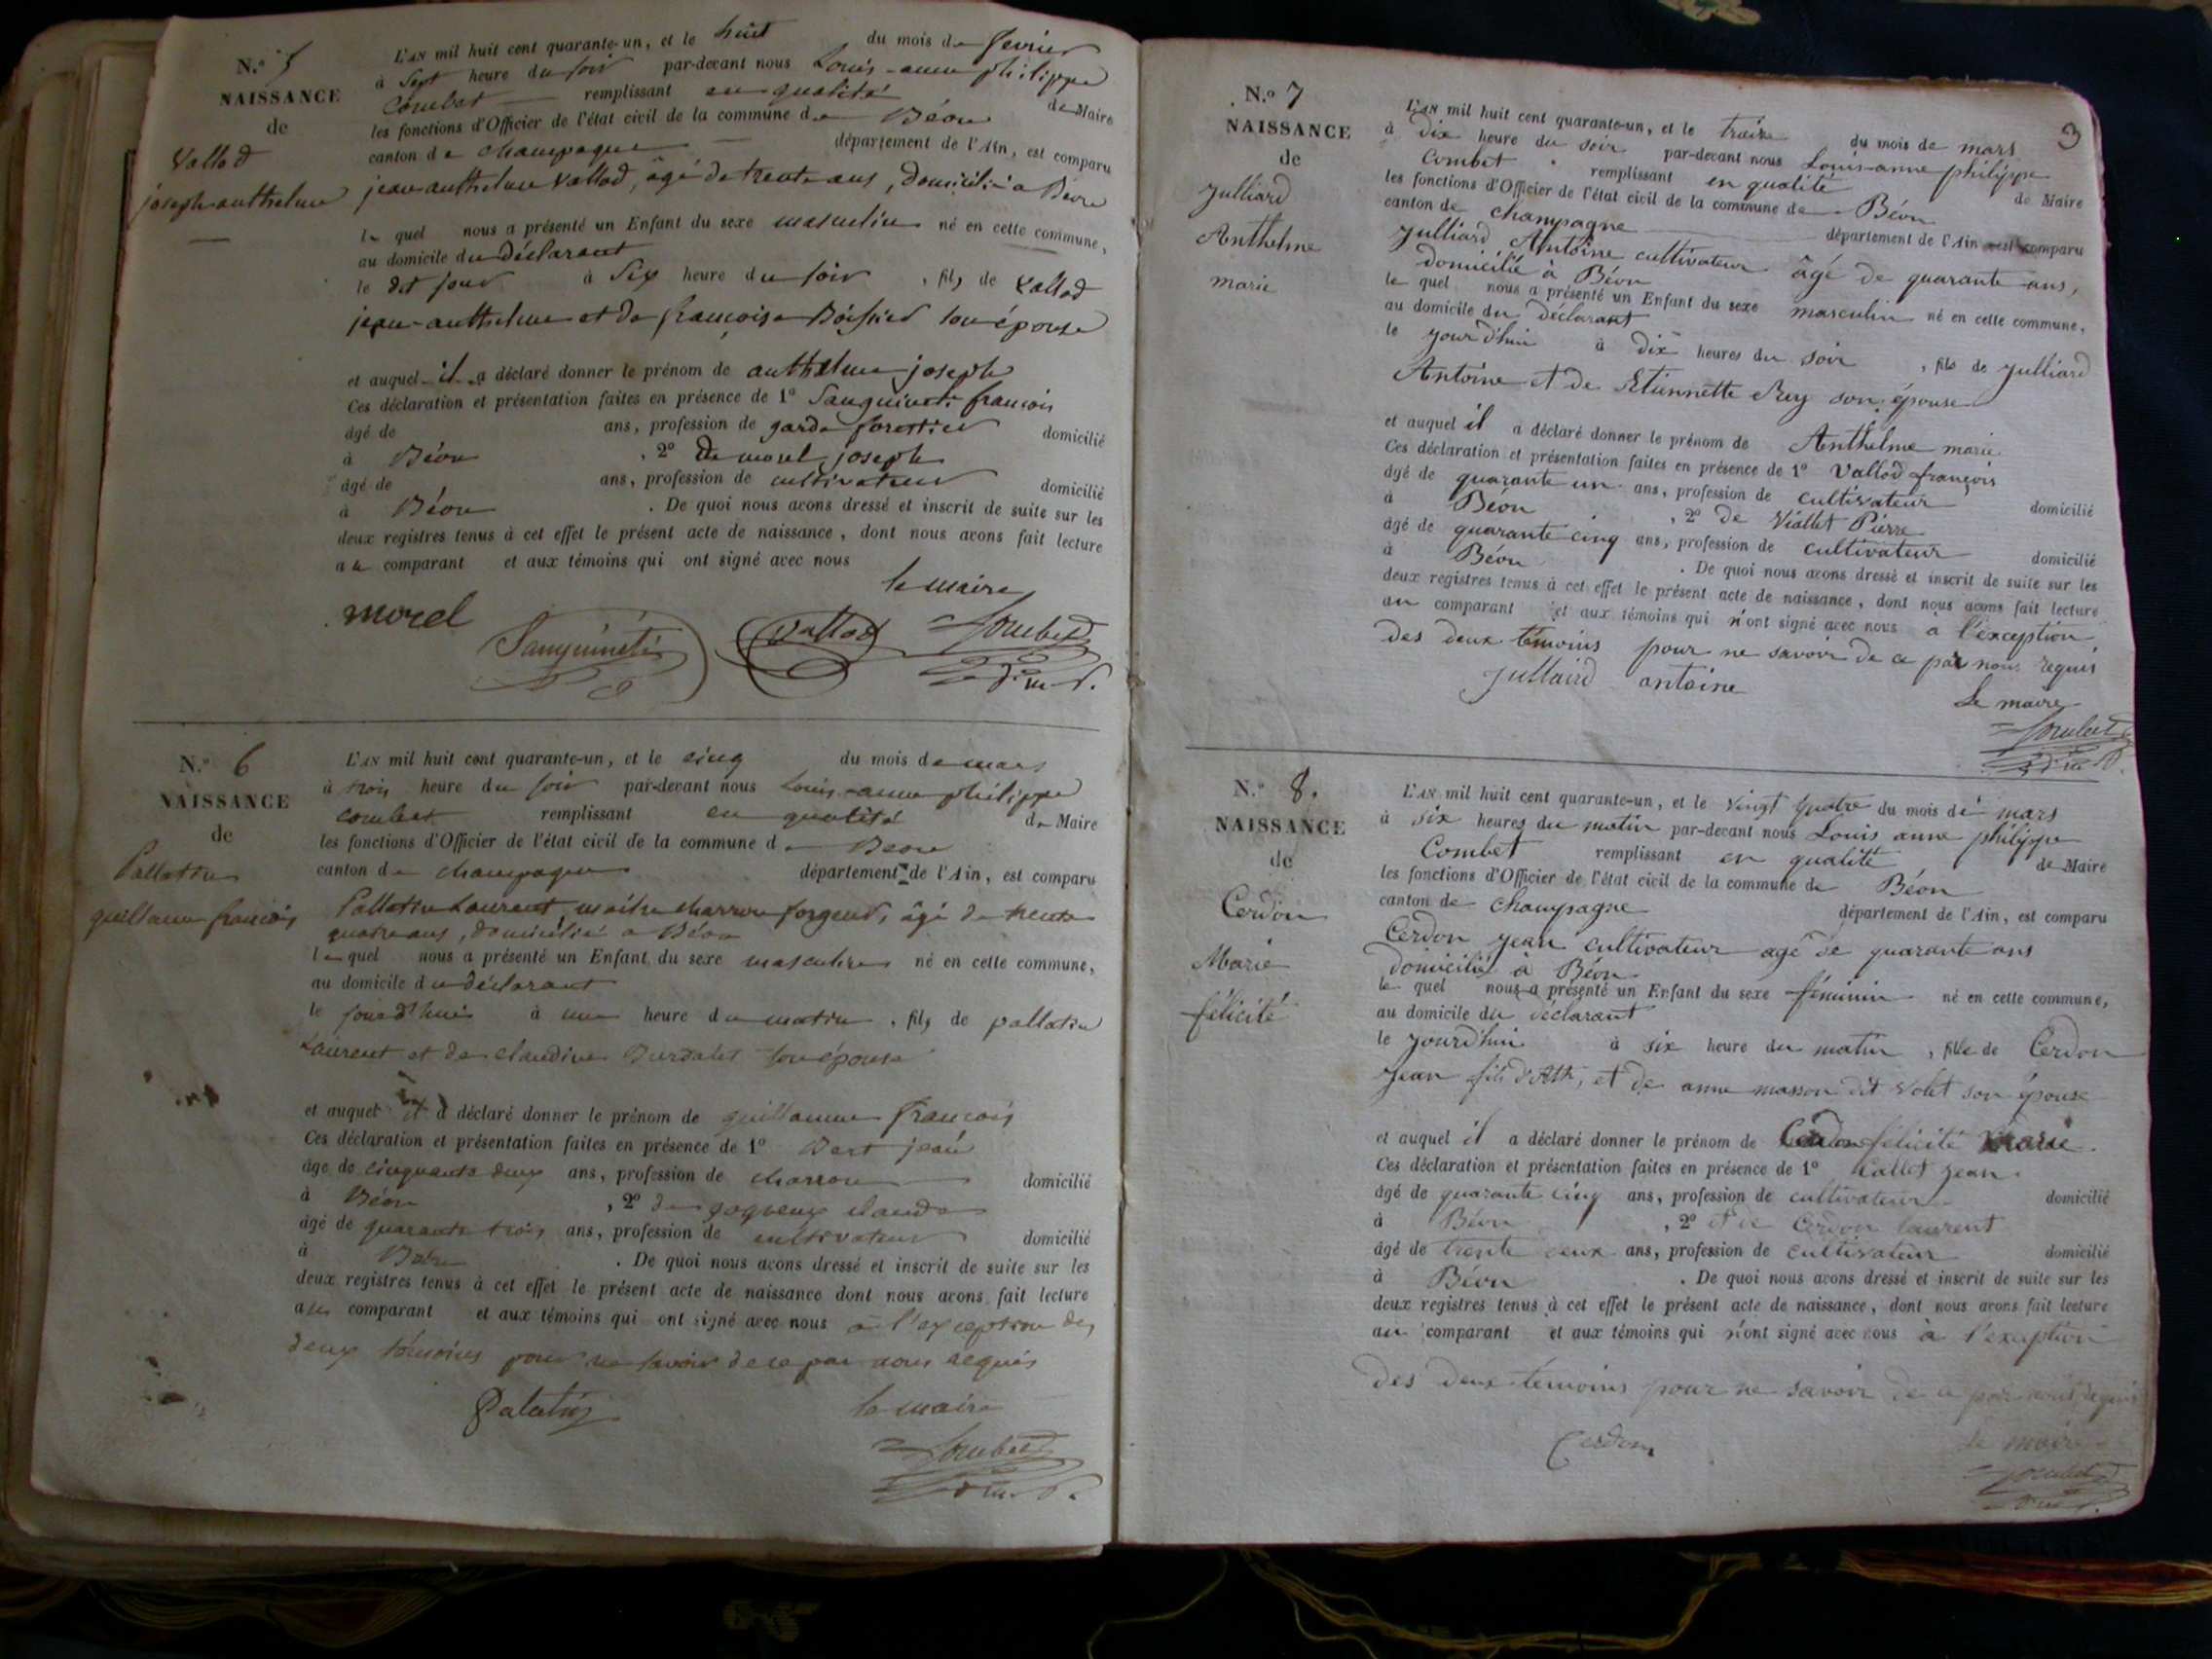 N.° 5
NAISSANCE
de
Vallod
joseph anthelme
L'AN mil huit cent quarante-un, et le huit du mois de fevrier
à Sept heure du soir par-devant nous Louis-anne philippe
Combet remplissant en qualité de Maire
les fonctions d'Officier de l'état civil de la commune de Béon
canton de champagne département de l'Ain, est comparu
jean anthelme Vallod, âgé de trente ans, domicilié a Béon
le quel nous a présenté un Enfant du sexe masculin né en cette commune,
au domicile du déclarant
le dit jour à Six heure du soir, fils de Vallod
jean-anthelme et de françoise son épouse
et auquel il a déclaré donner le prénom de anthelme joseph
Ces déclaration et présentation faites en présence de 1° Sanguineti françois
âgé de ans, profession de garde forestier domicilié
à Béon, 2° de morel joseph
âgé de ans, profession de cultivateur domicilié
à Béon. De quoi nous avons dressé et inscrit de suite sur les
deux registres tenus à cet effet le présent acte de naissance, dont nous avons fait lecture
au comparant et aux témoins qui ont signé avec nous
le maire
morel Sanguineti Vallod Combet
N.° 6
NAISSANCE
de
Pallatin
guillaume françois
L'AN mil huit cent quarante-un, et le cinq du mois de mars
à trois heure du soir par-devant nous Louis-anne philippe
combet remplissant en qualité de Maire
les fonctions d'Officier de l'état civil de la commune de Beon
canton de champagne département de l'Ain, est comparu
Pallatin Laurent, maitre charron forgeur, âgé de trente
quatre ans, domicilié a Béon
le quel nous a présenté un Enfant du sexe masculin né en cette commune,
au domicile du déclarant
le jourd'hui à une heure du matin, fils de pallatin
Laurent et de claudine son épouse
et auquel il a déclaré donner le prénom de guillaume françois
Ces déclaration et présentation faites en présence de 1° jean
âgé de cinquante deux ans, profession de charron domicilié
à Béon, 2° de claude
âgé de quarante trois ans, profession de cultivateur domicilié
à Béon. De quoi nous avons dressé et inscrit de suite sur les
deux registres tenus à cet effet le présent acte de naissance dont nous avons fait lecture
au comparant et aux témoins qui ont signé avec nous à l'exception des
deux témoins pour ne savoir de ce par nous requis
Palatin le maire
Combet
3
N.° 7
NAISSANCE
de
Julliard
Anthelme
marie
L'AN mil huit cent quarante-un, et le treize du mois de mars
à dix heure du soir par-devant nous Louis-anne philippe
Combet remplissant en qualité de Maire
les fonctions d'Officier de l'état civil de la commune de Béon
canton de champagne département de l'Ain est comparu
Julliard Antoine cultivateur âgé de quarante ans,
domicilié à Béon
le quel nous a présenté un Enfant du sexe masculin né en cette commune,
au domicile du déclarant
le jourd'hui à dix heures du soir, fils de Julliard
Antoine et de Etiennette Rey son épouse
et auquel il a déclaré donner le prénom de Anthelme marie
Ces déclaration et présentation faites en présence de 1° Vallod françois
âgé de quarante un ans, profession de cultivateur domicilié
à Béon, 2° de Viallet Pierre
âgé de quarante cinq ans, profession de cultivateur domicilié
à Béon. De quoi nous avons dressé et inscrit de suite sur les
deux registres tenus à cet effet le présent acte de naissance, dont nous avons fait lecture
au comparant et aux témoins qui n'ont signé avec nous à l'exception
des deux témoins pour ne savoir de ce par nous requis
Julliard antoine
Le maire
Combet
N.° 8.
NAISSANCE
de
Cerdon
Marie
félicité
L'AN mil huit cent quarante-un, et le vingt quatre du mois de mars
à six heures du matin par-devant nous Louis anne philippe
Combet remplissant en qualité de Maire
les fonctions d'Officier de l'état civil de la commune de Béon
canton de Champagne département de l'Ain, est comparu
Cerdon jean cultivateur agé de quarante ans
domicilié à Béon
le quel nous a présenté un Enfant du sexe féminin né en cette commune,
au domicile du déclarant
le jourd'hui à six heure du matin, fille de Cerdon
jean fils d'Ath, et de anne masson dit Volet son épouse
et auquel il a déclaré donner le prénom de félicité Marie.
Ces déclaration et présentation faites en présence de 1° Callet jean
âgé de quarante cinq ans, profession de cultivateur domicilié
à Béon, 2° et de Cerdon laurent
âgé de trente deux ans, profession de cultivateur domicilié
à Béon. De quoi nous avons dressé et inscrit de suite sur les
deux registres tenus à cet effet le présent acte de naissance, dont nous avons fait lecture
au comparant et aux témoins qui n'ont signé avec nous à l'exception
des deux témoins pour ne savoir de ce par nous requis
Cerdon le maire
Combet